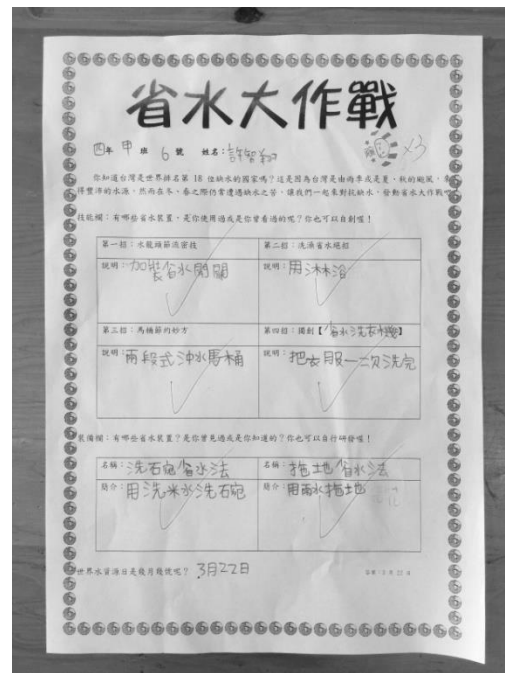 省水大作戰
四年 甲 班 6 號 姓名：許智翔
×3
你知道台灣是世界排名第 18 位缺水的國家嗎？這是因為台灣是由雨季或是夏、秋的颱風，
得豐沛的水源，然而在冬、春之際仍常遭遇缺水之苦，讓我們一起來對抗缺水，發動省水大作戰吧
技能欄：有哪些省水裝置，是你使用過或是你曾看過的呢？你也可以自創喔！
第一招：水龍頭節流密技
第二招：洗澡省水絕招
說明：加裝省水開關
說明：用淋浴
第三招：馬桶節約妙方
第四招：獨創【省水洗衣機】
說明：兩段式沖水馬桶
說明：把衣服一次洗完
裝備欄：有哪些省水裝置？是你曾見過或是你知道的？你也可以自行研發喔！
名稱：洗碗省水法
名稱：拖地省水法
簡介：用洗米水洗碗
簡介：用雨水拖土地
世界水資源日是幾月幾號呢？3月22日
答案：3 月 22 日